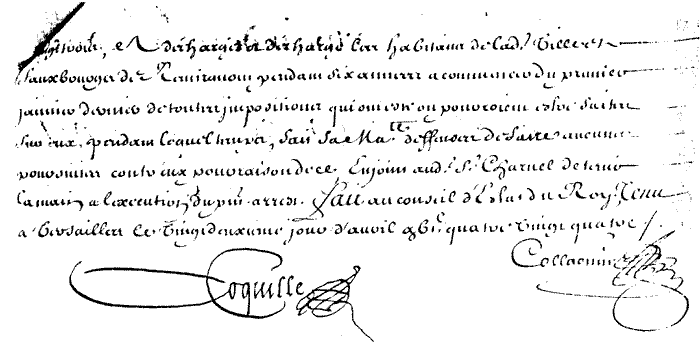 et descharge les habitans de lad. ville et
fauxbourgs de Remiremont pendant six années a commencer du premier
janvier dernier de toutes impositions qui ont esté ou pouroient estre faites
sur eux, pendant lequel temps, fait sa Ma.té deffences de faire aucunes
poursuites contr eux pour raison de ce. Enjoint aud. s.r Charuel de tenir
la main a l'execution du pñt arrest. Fait au conseil d'Estat du Roy, tenu
a Versailles le vingt deuxieme jour d'avril gbi.c quatre vingt quatre /.
Collationné
Coquille